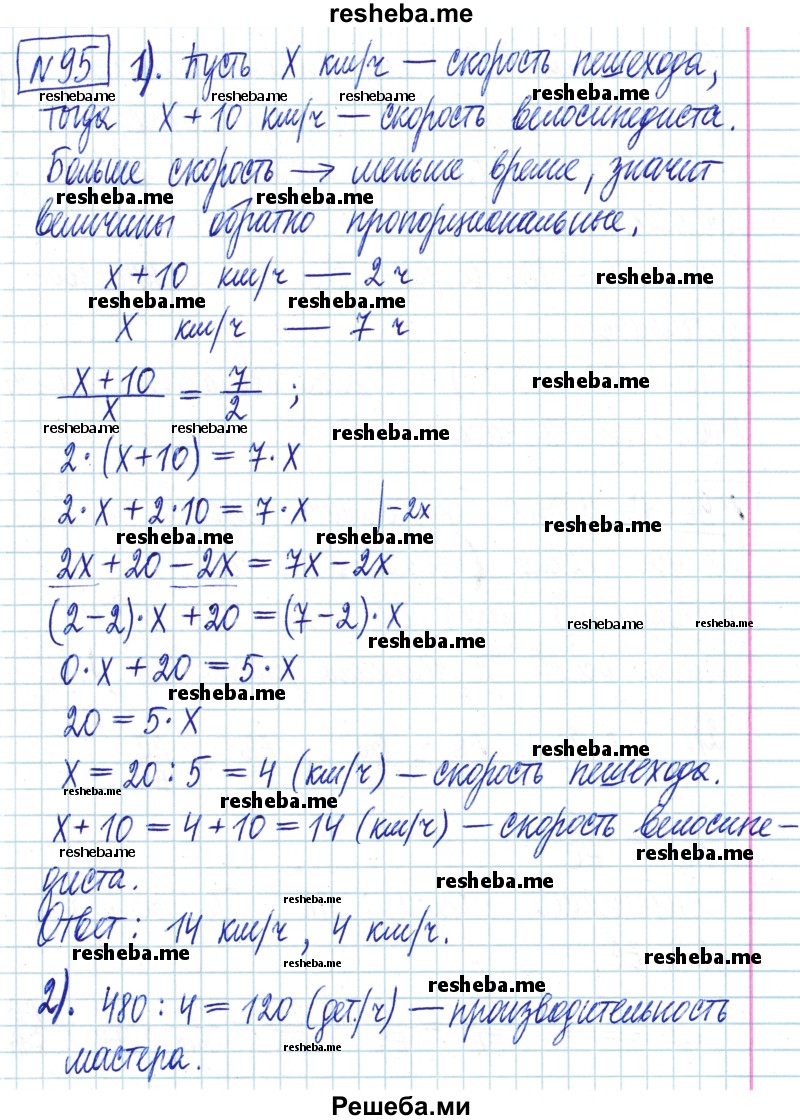 resheba.me
№95 1). Пусть х км/ч — скорость пешехода,
resheba.me resheba.me resheba.me resheba.me
тогда х + 10 км/ч — скорость велосипедиста.
Больше скорость → меньше време, значит
resheba.me resheba.me
величины обратно пропорциональные.
х + 10 км/ч — 2 ч
resheba.me
resheba.me resheba.me
х км/ч — 7 ч
х + 10 / х = 7 / 2 ;
resheba.me
resheba.me resheba.me resheba.me
2·(х+10) = 7·х
2·х + 2·10 = 7·х |-2х
resheba.me resheba.me resheba.me
2х + 20 - 2х = 7х - 2х
(2-2)·х + 20 = (7-2)·х
resheba.me resheba.me resheba.me
0·х + 20 = 5·х
resheba.me
20 = 5·х
resheba.me
х = 20 : 5 = 4 (км/ч) — скорость пешехода.
resheba.me resheba.me
х + 10 = 4 + 10 = 14 (км/ч) — скорость велосипе-
resheba.me resheba.me
диста.
resheba.me
resheba.me
Ответ: 14 км/ч, 4 км/ч.
resheba.me resheba.me resheba.me
resheba.me
2). 480 : 4 = 120 (дет/ч) — производительность
мастера.
resheba.me
Решеба.ми